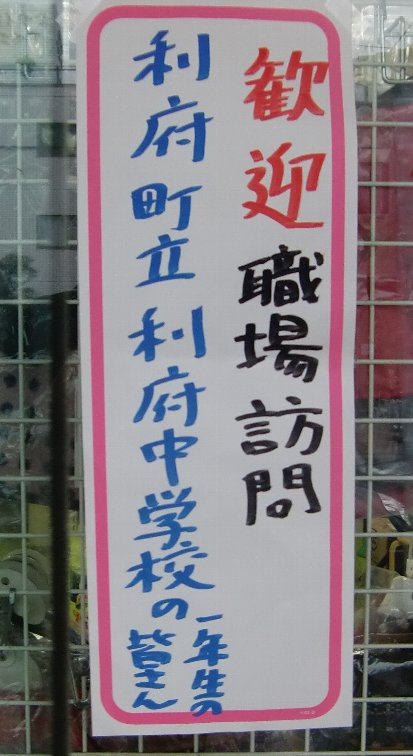 歓迎職場訪問
利府町立利府中学校の
一年生の
皆さん